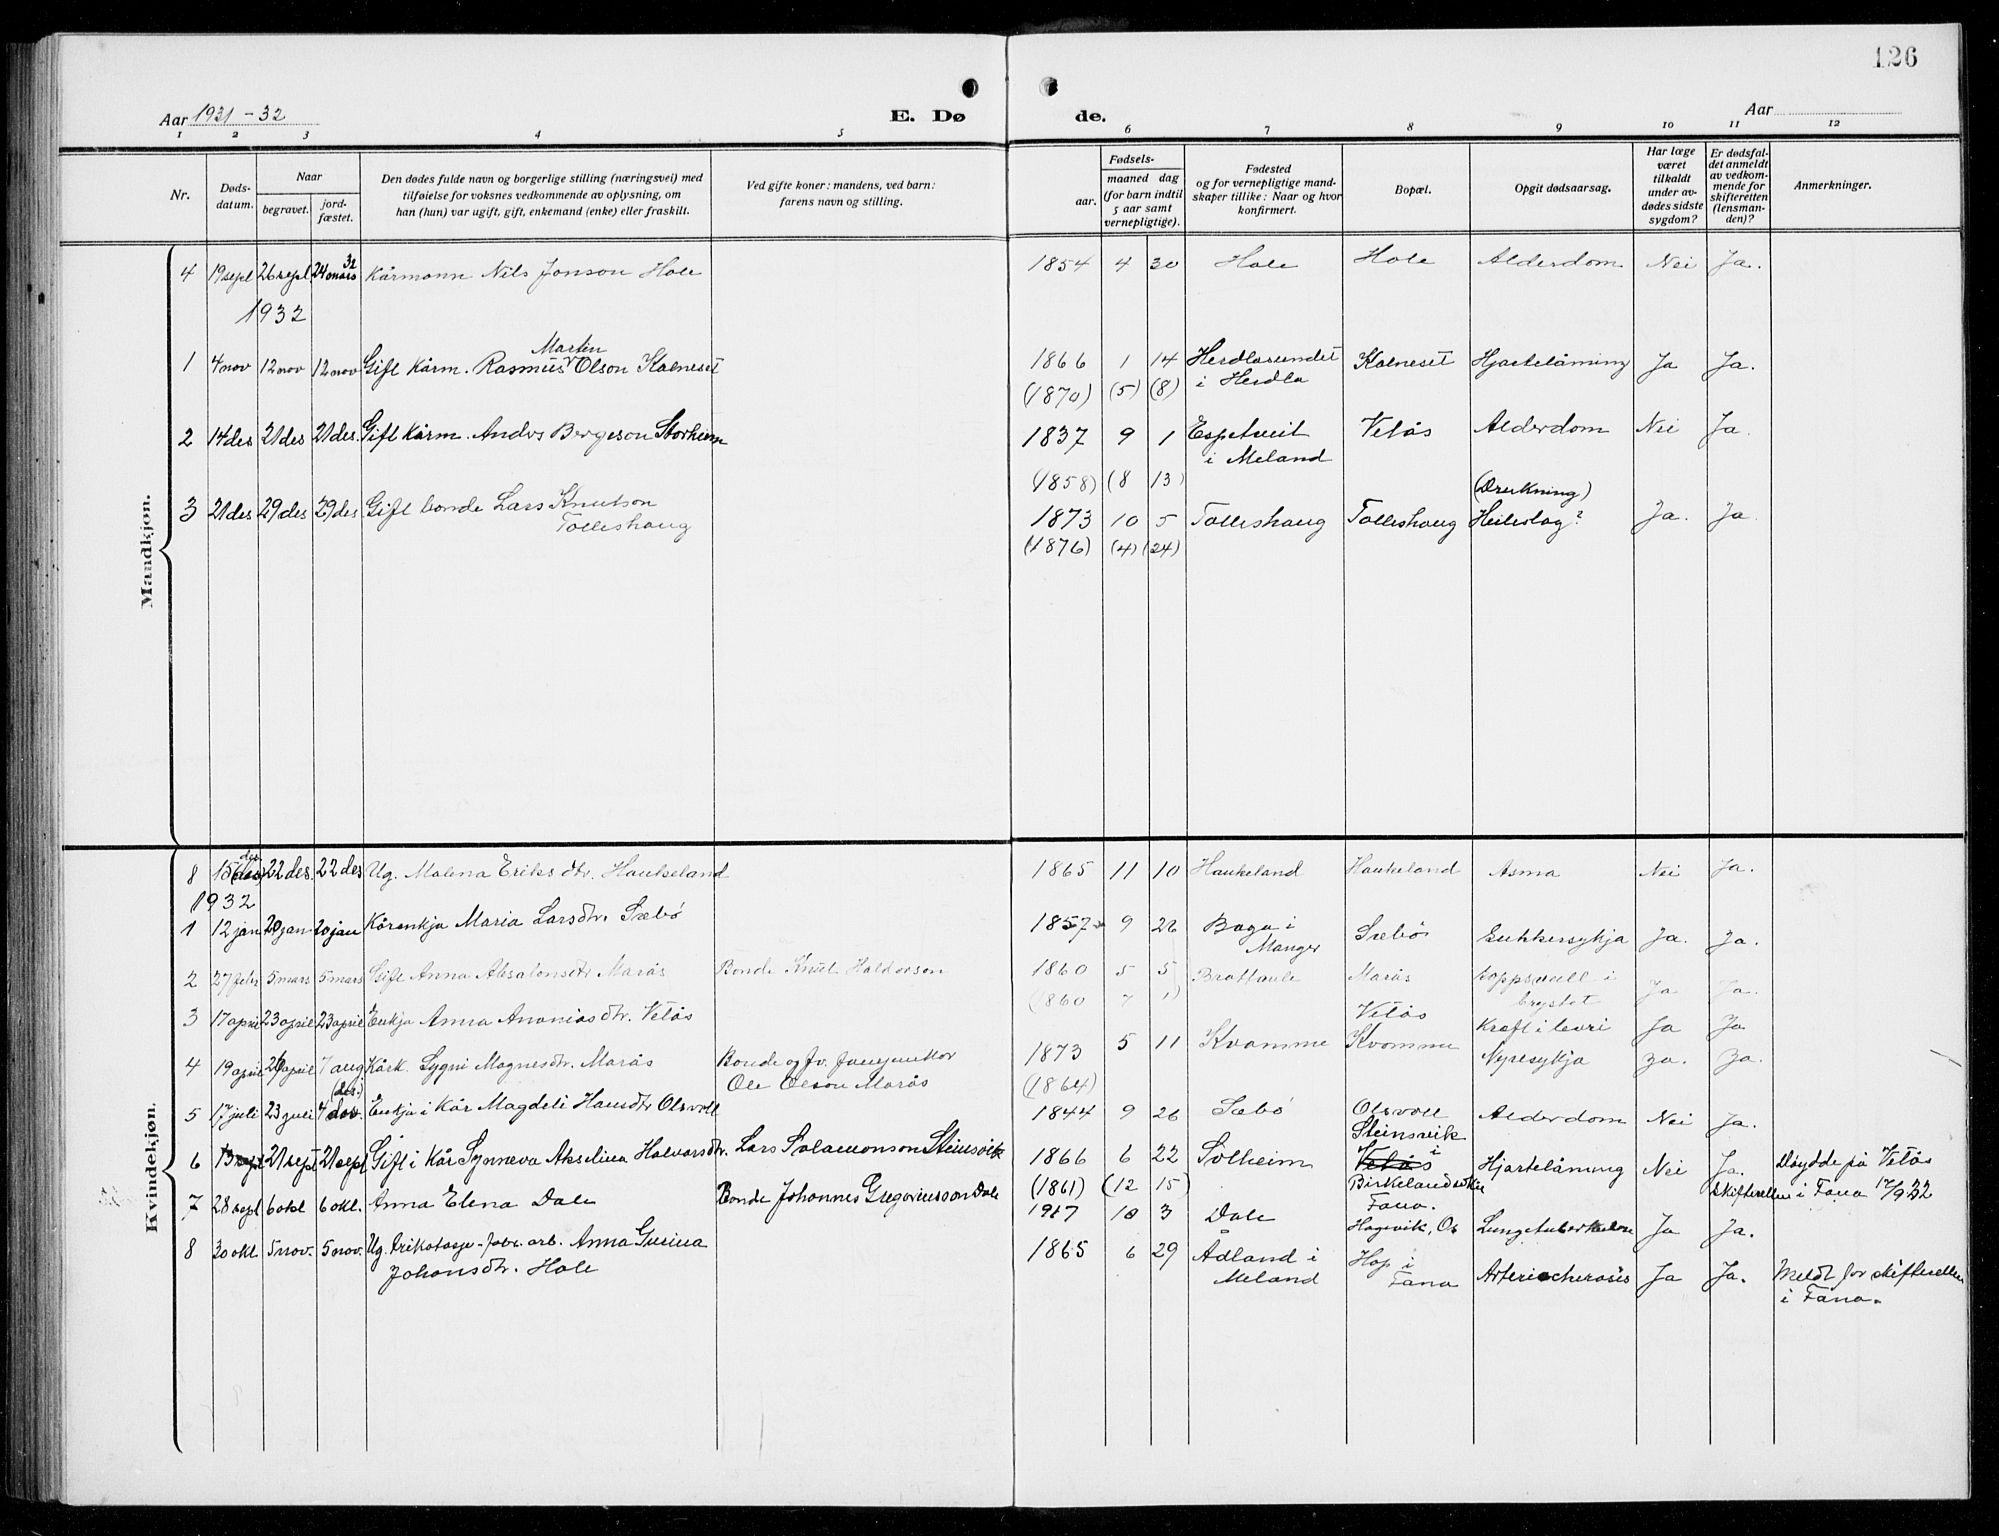 126
Aar 1931-32
E. Dø
de.
Aar
1 2 3 4 5 6 7 8 9 10 11 12
Nr.
Døds-
datum.
Naar
begravet.
jord-
fæstet.
Den dødes fulde navn og borgerlige stilling (næringsvei) med
tilføielse for voksnes vedkommende av oplysning, om
han (hun) var ugift, gift, enkemand (enke) eller fraskilt.
Ved gifte koner: mandens, ved barn:
farens navn og stilling.
Fødsels-
aar.
maaned dag
(for barn indtil
5 aar samt
vernepligtige).
Fødested
og for vernepligtige mand-
skaper tillike: Naar og hvor
konfirmert.
Bopæl.
Opgit dødsaarsag.
Har læge
været
tilkaldt
under av-
dødes sidste
sygdom?
Er dødsfal-
det anmeldt
av vedkom-
mende for
skifteretten
(lensman-
den)?
Anmerkninger.
Mandkjøn.
4 19 sept 26 sept 24 mars 32 Kårmann Nils Jonson Hole 1854 4 30 Hole Hole Alderdom Nei Ja.
1932
Martin
1 4 nov 12 nov 12 nov Gift Kårm. Rasmus Olson Kalneset 1866 1 14 Herdlasundet Kalneset Hjartelåming Ja Ja.
(1870) (5) (8) i Herdla
2 14 des 21 des 21 des. Gift Kårm. Anders Bergeson Storheim 1837 9 1 Espetveit Vetås Alderdom Nei Ja.
i Meland
(1858) (8 13) (Drukning)
3 21 des 29 des 29 des Gift bonde Lars Knutson 1873 10 5 Tolleshaug Tolleshaug Heileslag? Ja. Ja
Tolleshaug
(1876) (4) (24)
Kvindekjøn.
8 15 (des) des 22 des. 22 des Ug. Malena Eriksdtr. Haukeland 1865 11 10 Haukeland Haukeland Asma Nei Ja.
1932
1 12 jan 20 jan 20 jan Kårenkja Maria Larsdtr. Sæbø 1857 9 26 Boga i Sæbø Sukkersykja Ja. Ja.
Manger
2 27 febr 5 mars 5 mars Gift Anna Absalonsdtr Marås Bonde Knut Haldorson 1860 5 5 Brattaule Marås koppsvull i Ja Ja.
(1860 7 1) brystet
3 17 april 23 april 23 april Enkja Anna Ananiasdtr. Vetås Vetås Kreft i levri Ja Ja
5 11 Kvamme Kvamme
4 19 april 26 april 7 aug Kårk. Sygni Magnesdtr. Marås Bonde og fv. 1873 Nyresykja Ja. Ja.
Ole Olson Marås (1864)
(des.)
5 17 juli 23 juli 4 Enkja i Kår Magdeli Hansdtr Olsvoll 1844 9 26 Sæbø Olsvoll Alderdom Nei Ja.
Steinsvik
6 13 sept 21 sept 21 sept Gift i Kår Synneva Akselina Halvorsdtr. Lars Salamonson Steinsvik 1866 6 22 Solheim Vetås i Hjartelåming Nei Ja. Døydde på Vetås
(1861) (12 15) Birkelandsvikje Skifteretten i Fana 17/9 32
Fana.
7 28 sept 6 okt 6 okt. Anna Elena Dale Bonde Johannes Gregoriusson Dale 1917 10 3 Dale Hagevik, Os Lungetuberkulose Ja Ja.
8 30 okt. 5 nov. 5 nov. Ug. Trikotasje-fabr. arb. Anna Gurina 1865 6 29 Ådland i Hop i Arterioskerosis Ja Ja. Meldt for skifteretten
Johansdtr. Hole Meland Fana i Fana.